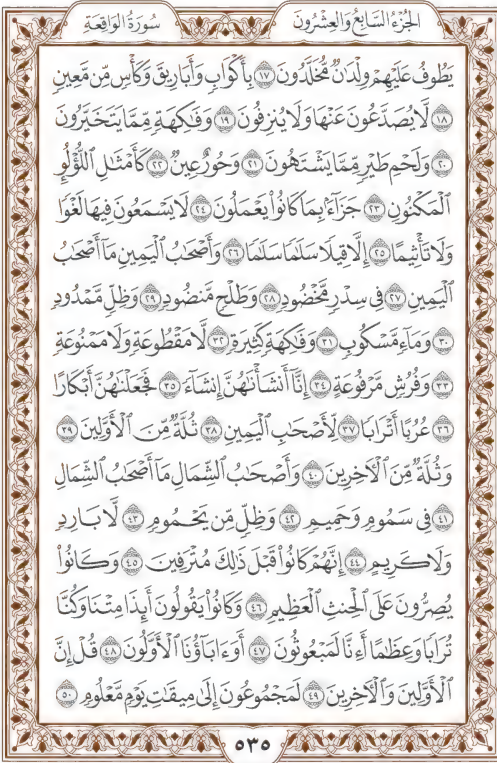 سُورَةُ الوَاقِعَةِ الجُزْءُ السَّابِعُ وَالعِشْرُونَ
يَطُوفُ عَلَيْهِمْ وِلْدَٰنٌ مُّخَلَّدُونَ ١٧ بِأَكْوَابٍ وَأَبَارِيقَ وَكَأْسٍ مِّن مَّعِينٍ
١٨ لَّا يُصَدَّعُونَ عَنْهَا وَلَا يُنزِفُونَ ١٩ وَفَٰكِهَةٍ مِّمَّا يَتَخَيَّرُونَ
٢٠ وَلَحْمِ طَيْرٍ مِّمَّا يَشْتَهُونَ ٢١ وَحُورٌ عِينٌ ٢٢ كَأَمْثَٰلِ اللُّؤْلُوِٕ
الْمَكْنُونِ ٢٣ جَزَآءًۢ بِمَا كَانُوا۟ يَعْمَلُونَ ٢٤ لَا يَسْمَعُونَ فِيهَا لَغْوًا
وَلَا تَأْثِيمًا ٢٥ إِلَّا قِيلًا سَلَٰمًا سَلَٰمًا ٢٦ وَأَصْحَٰبُ الْيَمِينِ مَآ أَصْحَٰبُ
الْيَمِينِ ٢٧ فِى سِدْرٍ مَّخْضُودٍ ٢٨ وَطَلْحٍ مَّنضُودٍ ٢٩ وَظِلٍّ مَّمْدُودٍ
٣٠ وَمَآءٍ مَّسْكُوبٍ ٣١ وَفَٰكِهَةٍ كَثِيرَةٍ ٣٢ لَّا مَقْطُوعَةٍ وَلَا مَمْنُوعَةٍ
٣٣ وَفُرُشٍ مَّرْفُوعَةٍ ٣٤ إِنَّآ أَنشَأْنَٰهُنَّ إِنشَآءً ٣٥ فَجَعَلْنَٰهُنَّ أَبْكَارًا
٣٦ عُرُبًا أَتْرَابًا ٣٧ لِّأَصْحَٰبِ الْيَمِينِ ٣٨ ثُلَّةٌ مِّنَ الْأَوَّلِينَ ٣٩
وَثُلَّةٌ مِّنَ الْءَاخِرِينَ ٤٠ وَأَصْحَٰبُ الشِّمَالِ مَآ أَصْحَٰبُ الشِّمَالِ
٤١ فِى سَمُومٍ وَحَمِيمٍ ٤٢ وَظِلٍّ مِّن يَحْمُومٍ ٤٣ لَّا بَارِدٍ
وَلَا كَرِيمٍ ٤٤ إِنَّهُمْ كَانُوا۟ قَبْلَ ذَٰلِكَ مُتْرَفِينَ ٤٥ وَكَانُوا۟
يُصِرُّونَ عَلَى الْحِنثِ الْعَظِيمِ ٤٦ وَكَانُوا۟ يَقُولُونَ أَئِذَا مِتْنَا وَكُنَّا
تُرَابًا وَعِظَٰمًا أَءِنَّا لَمَبْعُوثُونَ ٤٧ أَوَءَابَآؤُنَا الْأَوَّلُونَ ٤٨ قُلْ إِنَّ
الْأَوَّلِينَ وَالْءَاخِرِينَ ٤٩ لَمَجْمُوعُونَ إِلَىٰ مِيقَٰتِ يَوْمٍ مَّعْلُومٍ ٥٠
٥٣٥